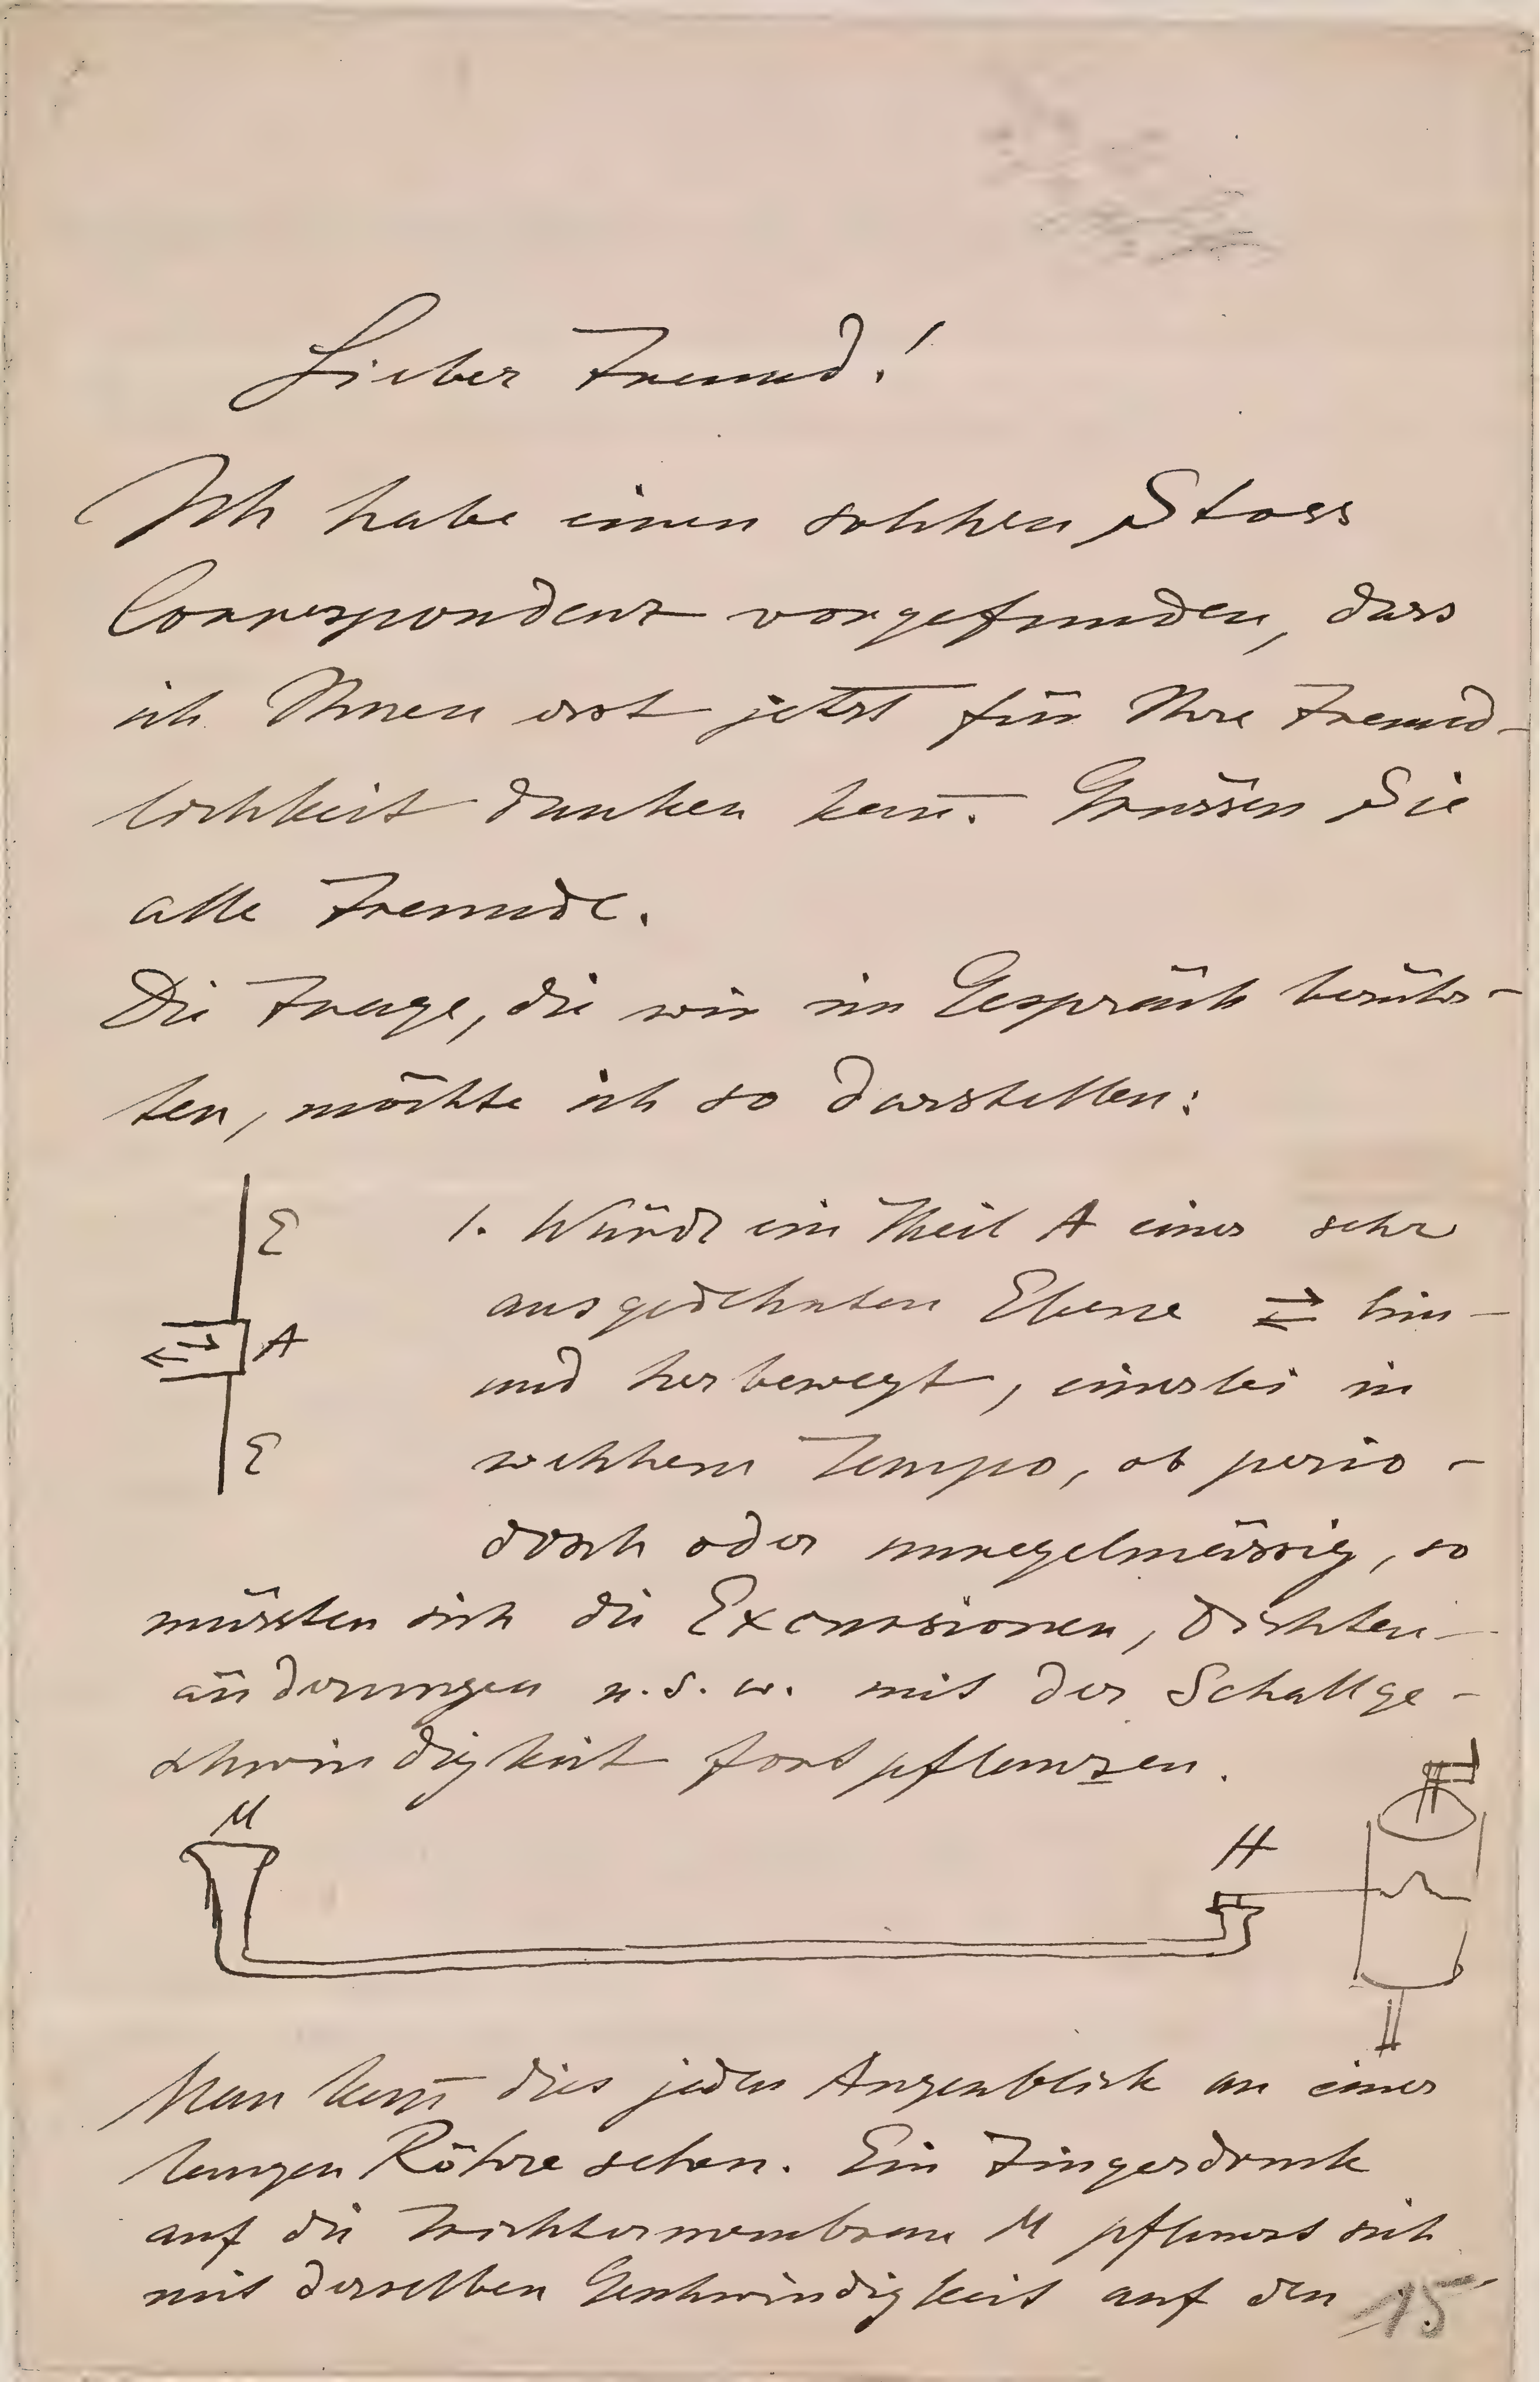 Lieber Freund!
Ich habe einen solchen Stoss
Correspondenz vorgefunden, dass
ich Ihnen erst jetzt für Ihre Freund-
lichkeit danken kan̄. Grüssen Sie
alle Freunde.
Die Frage, die wir im Gespräch berühr-
ten, möchte ich so darstellen:
E
1. Würde ein Theil A einer sehr
ausgedehnten Ebene ⇄ hin-
A
und herbewegt, einerlei in
E
welchem Tempo, ob perio-
disch oder unregelmässig, so
müssten sich die Excursionen, Dichten-
änderungen u.s.w. mit der Schallge-
schwindigkeit fortpflanzen.
M
H
Man kan̄ dies jeden Augenblick an einer
langen Röhre sehen. Ein Fingerdruck
auf die Trichtermembrane M pflanzt sich
mit derselben Geschwindigkeit auf den
15